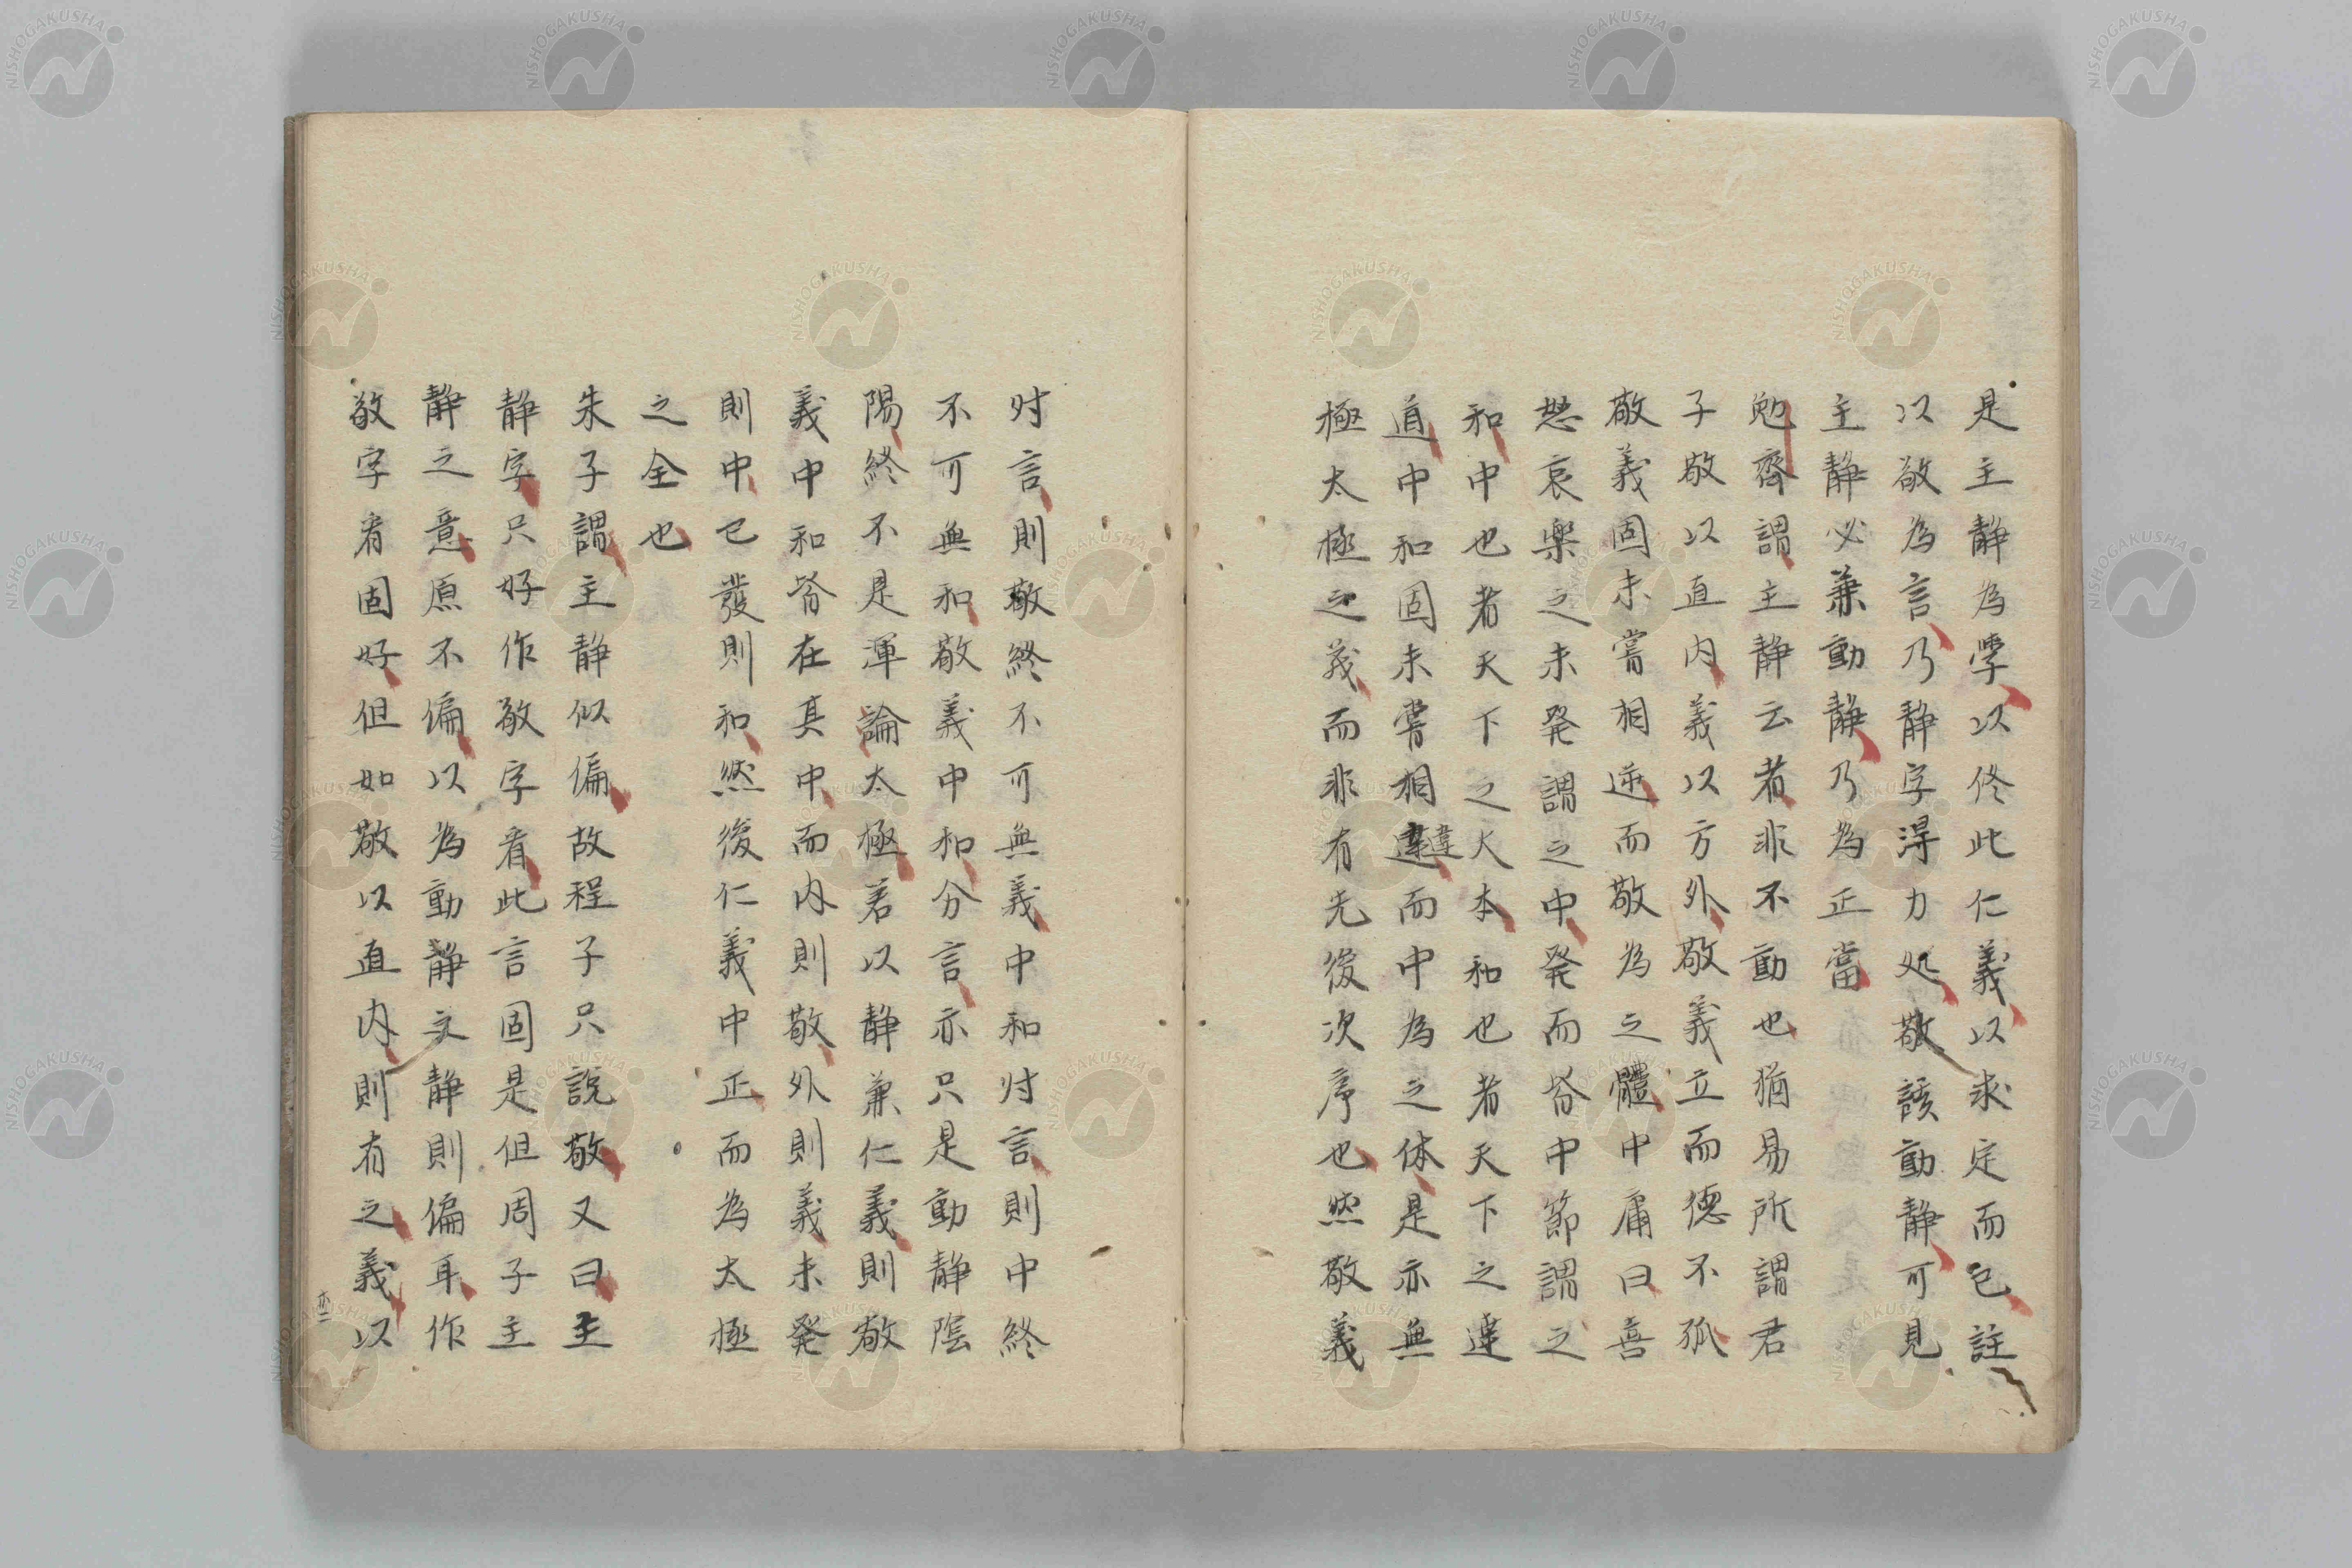 是主静為學以佟此仁義以求定而已註
以敬為言乃静字得力処敬該動静可見
主静必兼動静乃為正當
勉齊謂主静云者非不動也猶易所謂君
子敬以直内義以方外敬義立而德不孤
敬義固未嘗相逆而敬為之體中庸曰喜
怒哀楽之未発謂之中発而皆中節謂之
和中也者天下之大本和也者天下之達
道中和固未嘗相違違而中為之体是亦無
極太極之義而非有先後次序也然敬義
对言則敬終不可無義中和对言則中終
不可無和敬義中和分言亦只是動静陰
陽終不是渾論太極若以静兼仁義則敬
義中和皆在其中而内則敬外則義未発
則中已發則和然後仁義中正而為太極
之全也
朱子謂主静似偏故程子只說敬又曰主
静字只好作敬字看此言固是但周子主
静之意原不偏以為動静之静則偏耳作
敬字看固好但如敬以直内則有之義以
NISHOGAKUSHA